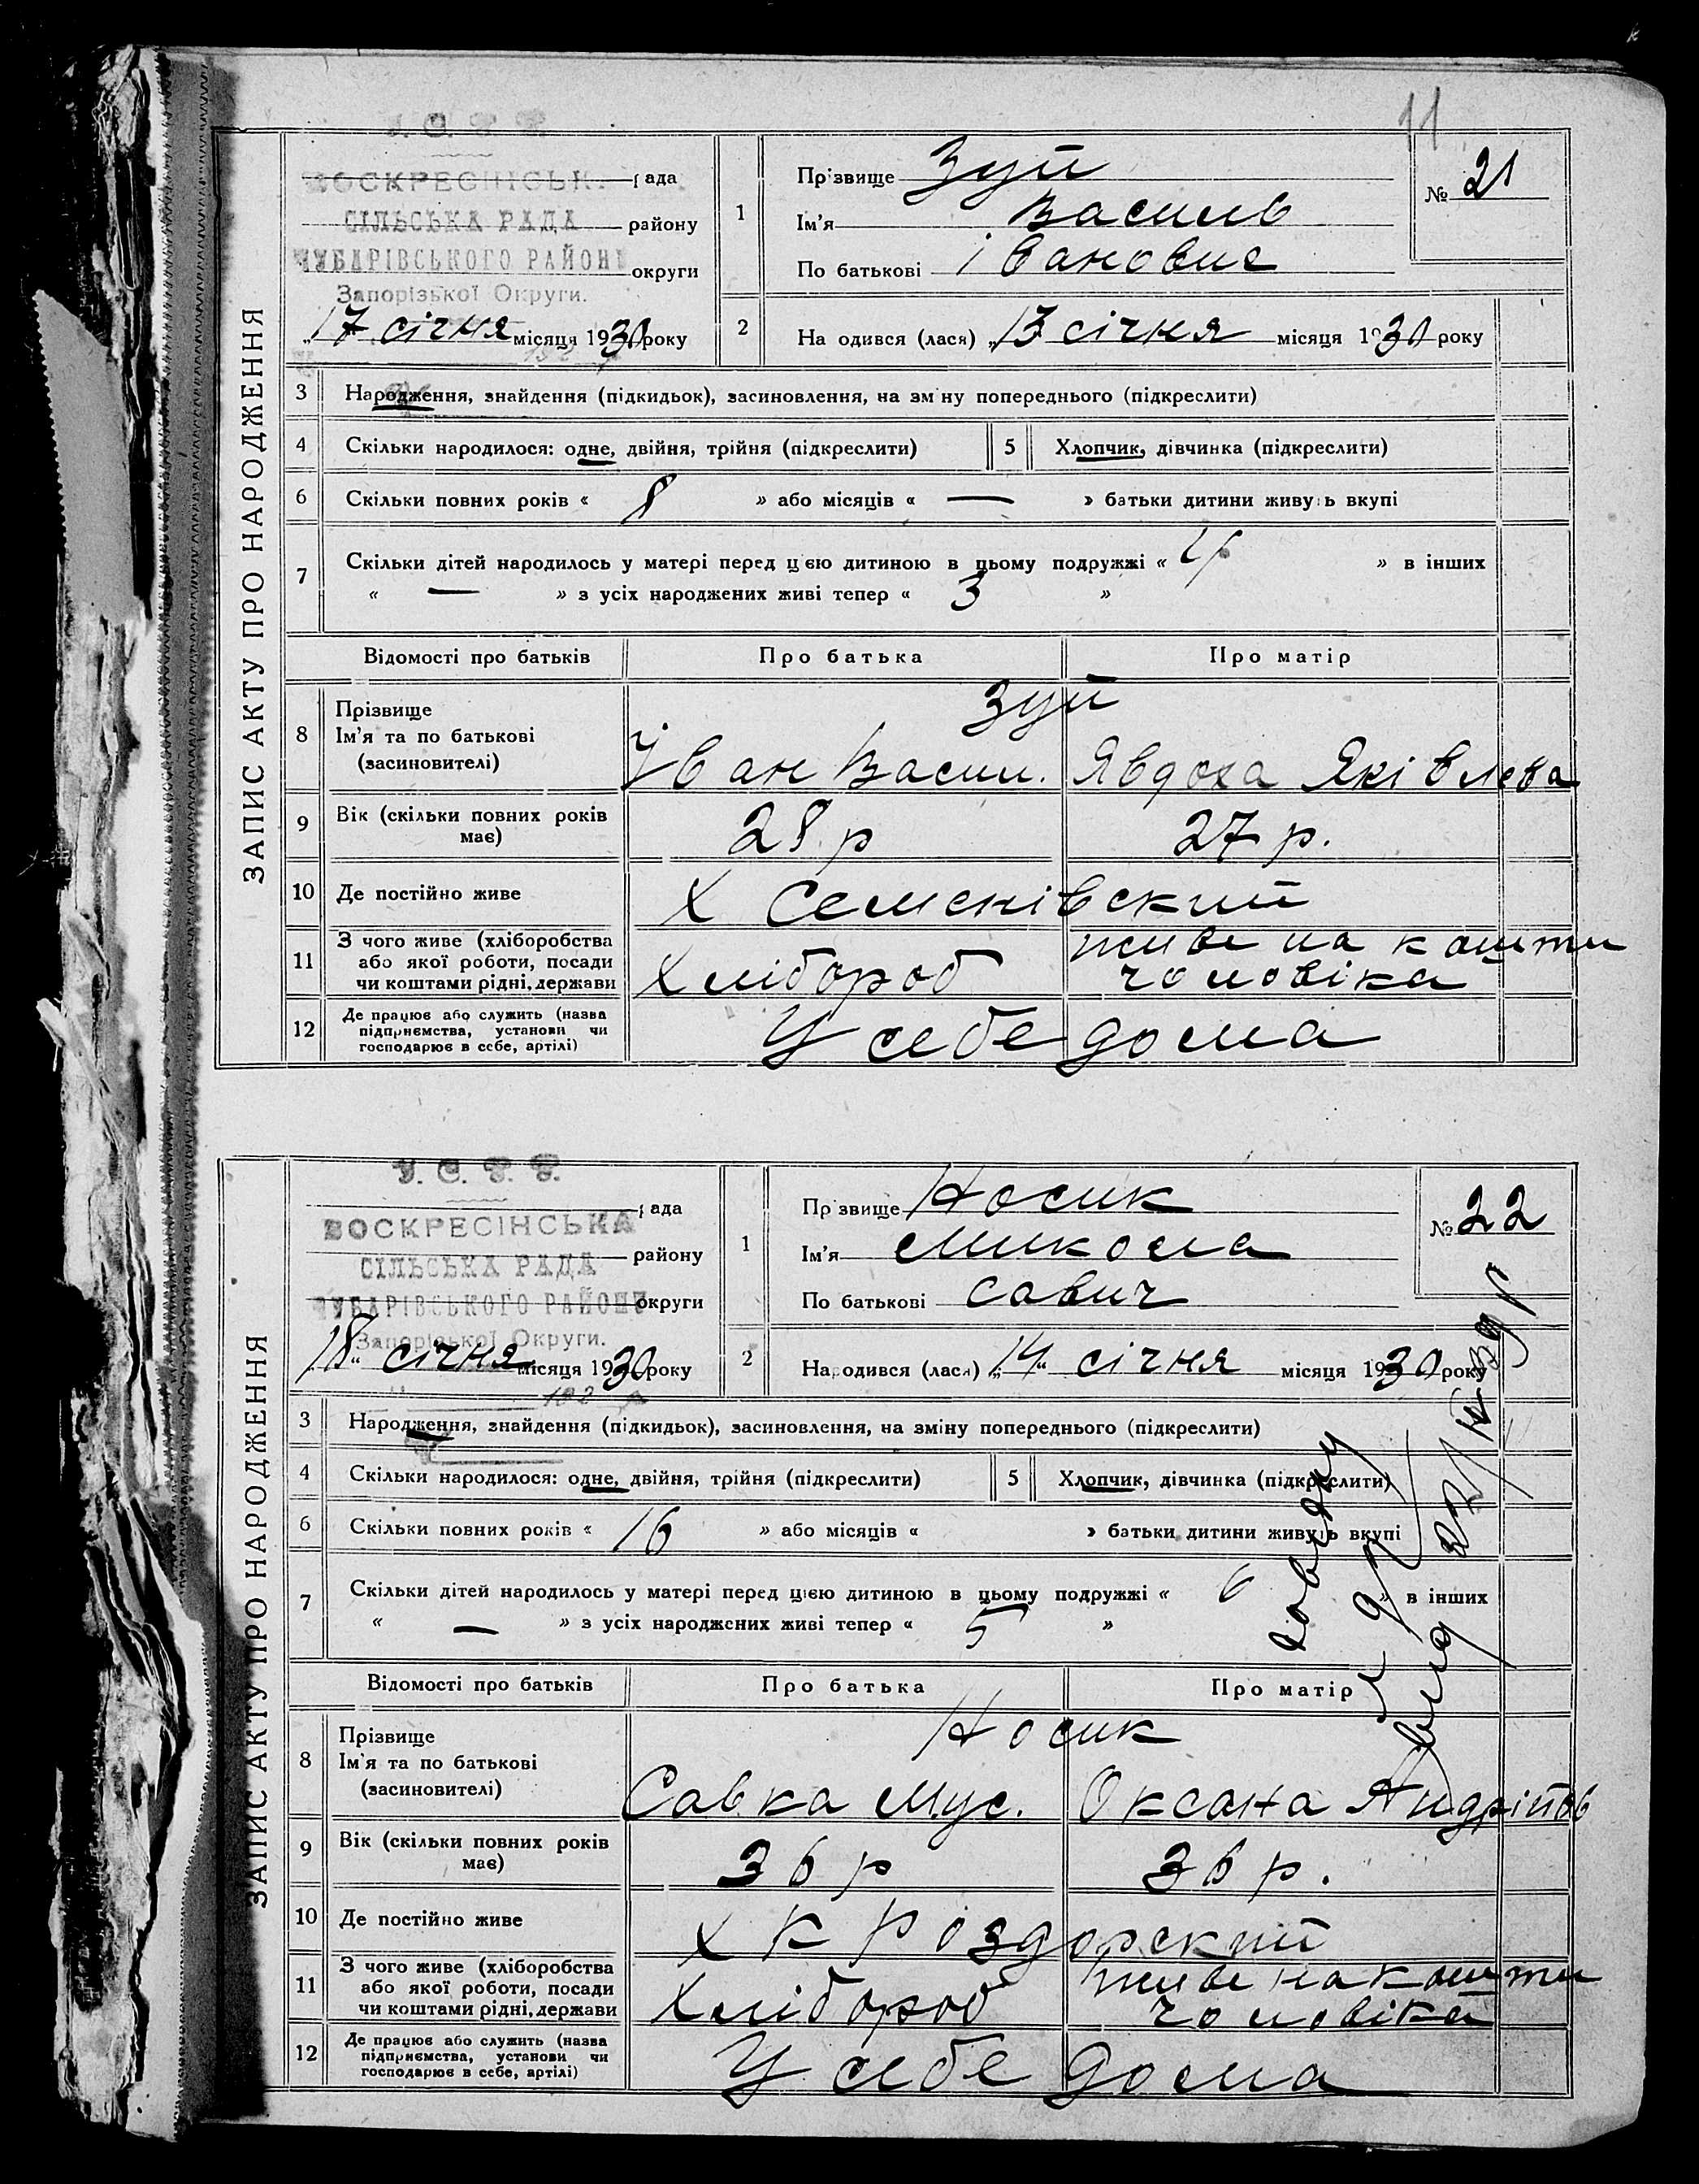 11
У. С. Р. Р.
ВОСКРЕСІНСЬК. рада
СІЛЬСЬКА РАДА району
ЧУБАРІВСЬКОГО РАЙОНУ округи
Запорізької Округи.
„17 січня місяця 1930 року
1 Прізвище Зуй
Ім'я Василь
По батькові Іванович
№ 21
2 На одився (лася) „13 січня місяця 1930 року
ЗАПИС АКТУ ПРО НАРОДЖЕННЯ
3 Народження, знайдення (підкидьок), засиновлення, на зм ну попереднього (підкреслити)
4 Скільки народилося: одне, двійня, трійня (підкреслити) 5 Хлопчик, дівчинка (підкреслити)
6 Скільки повних років « 8 » або місяців « — » батьки дитини живуть вкупі
7 Скільки дітей народилось у матері перед цією дитиною в цьому подружжі « 4 » в інших
« — » з усіх народжених живі тепер « 3 »
Відомості про батьків Про батька Про матір
8 Прізвище Зуй
Ім'я та по батькові
(засиновителі) Іван Васил. Явдоха Яківлева
9 Вік (скільки повних років має) 28 р 27 р.
10 Де постійно живе Х Семенівский
11 З чого живе (хліборобства
або якої роботи, посади
чи коштами рідні, держави Хлібороб живе на кошти
чоловіка
12 Де працює або служить (назва
підприємства, установи чи
господарює в себе, артілі) У себе дома
У. С. Р. Р.
рада
ВОСКРЕСІНСЬКА
району
СІЛЬСЬКА РАДА
ЧУБАРІВСЬКОГО РАЙОНУ округи
Запорізької Округи.
„18„ січня місяця 1930 року
1 Пр звище Носик
Ім'я Микола
По батькові Савич
№ 22
2 Народився (лася) „14„ січня місяця 1930 року
ЗАПИС АКТУ ПРО НАРОДЖЕННЯ
3 Народження, знайдення (підкидьок), засиновлення, на зміну попереднього (підкреслити)
4 Скільки народилося: одне, двійня, трійня (підкреслити) 5 Хлопчик, дівчинка (підкреслити)
6 Скільки повних років « 16 » або місяців « » батьки дитини живуть вкупі
7 Скільки дітей народилось у матері перед цією дитиною в цьому подружжі « 6 » в інших
« — » з усіх народжених живі тепер « 5 »
Відомості про батьків Про батька Про матір
8 Прізвище Носик
Ім'я та по батькові
(засиновителі) Савка Мус. Оксана Андріїв
9 Вік (скільки повних років має) 36 р 36 р.
10 Де постійно живе Х К Роздорский
11 З чого живе (хліборобства
або якої роботи, посади
чи коштами рідні, держави Хлібороб живе на кошти
чоловіка
12 Де працює або служить (назва
підприємства, установи чи
господарює в себе, артілі) У себе дома